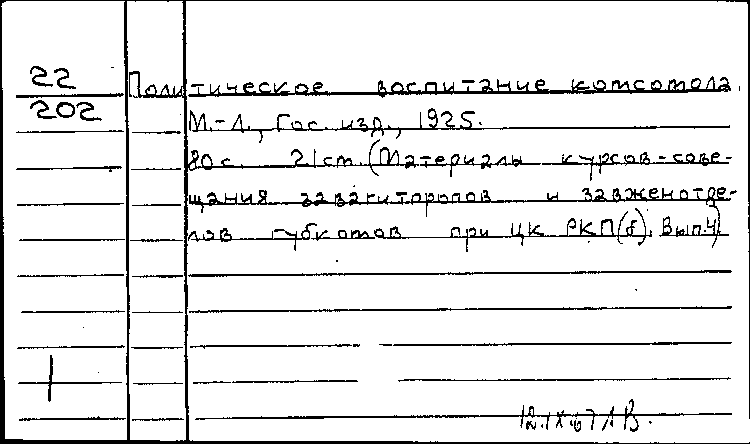 22
202
Политическое воспитание комсомола.
М.-Л., Гос. изд., 1925.
80 с. 21 cm. (Материалы курсов-сове-
щания завагитпропов и завженотде-
лов губкомов при ЦК РКП(б). Вып. 4)
1
12.IX.67